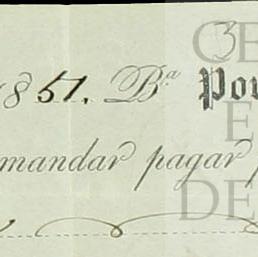 3
1851. B.ª Por
mandar pagar p
CE
E
DE